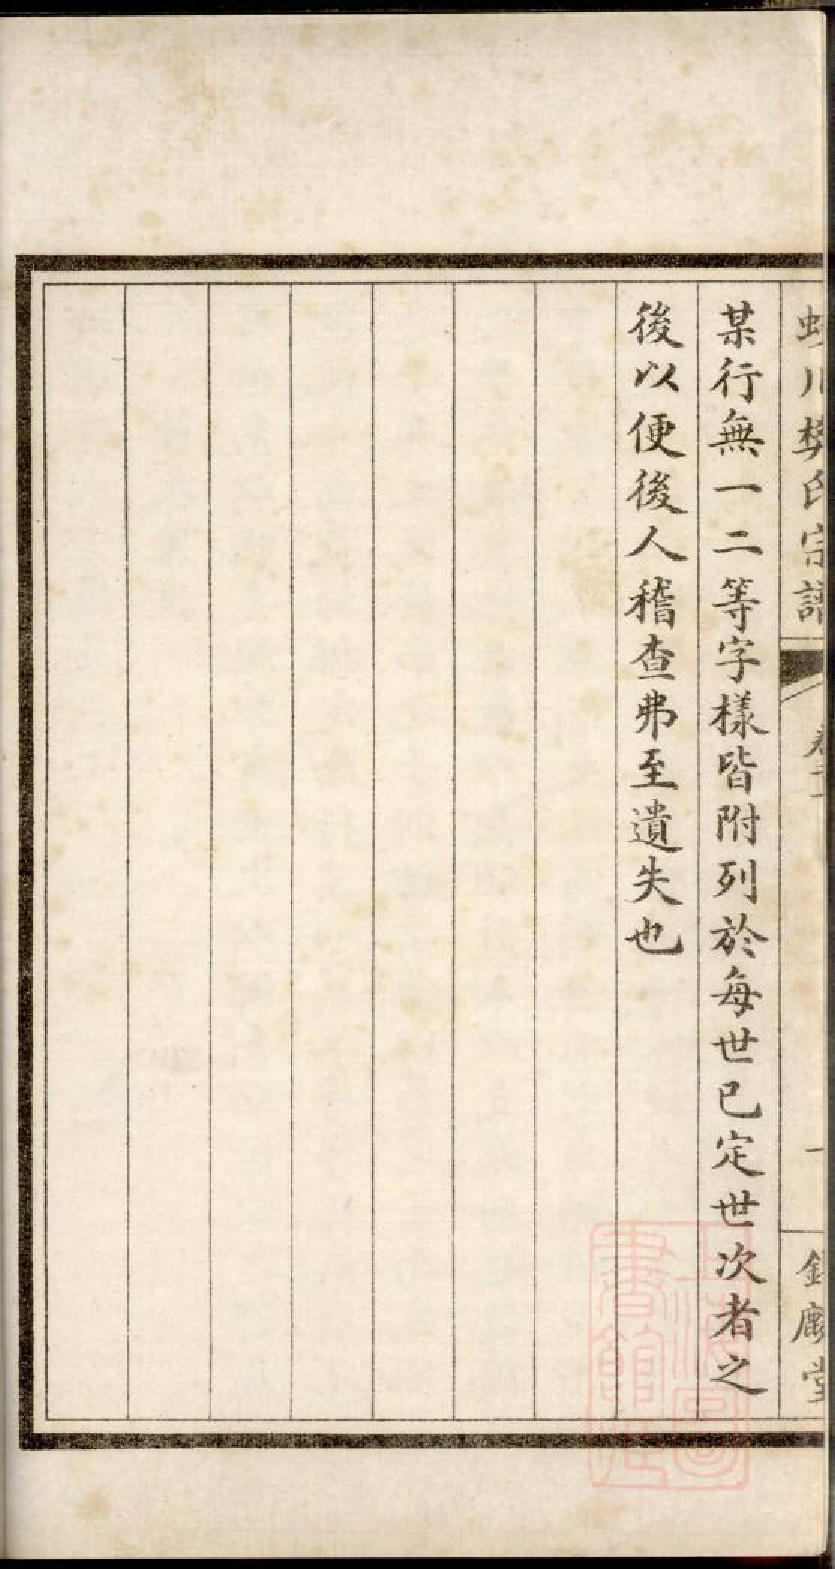 川樊氏宗譜
卷二
一
堂
某行無一二等字樣皆附列於每世已定世次者之
後以便後人稽查弗至遺失也
上海圖書館藏